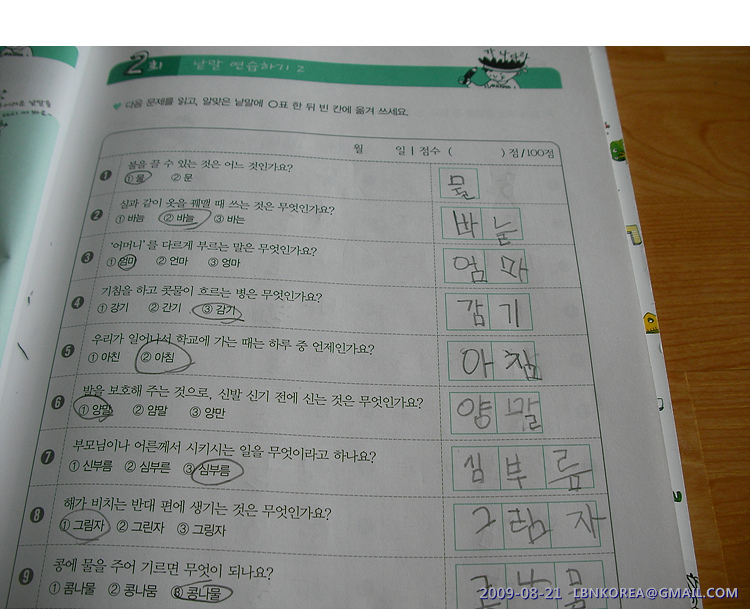 2회 낱말 연습하기 2
다음 문제를 읽고, 알맞은 낱말에 ○표 한 뒤 빈 칸에 옮겨 쓰세요.
월 일 | 점수 ( ) 점/100점
1 불을 끌 수 있는 것은 어느 것인가요?
① 물 ② 문
물
2 실과 같이 옷을 꿰맬 때 쓰는 것은 무엇인가요?
① 바늠 ② 바늘 ③ 바는
바늘
3 '어머니'를 다르게 부르는 말은 무엇인가요?
① 엄마 ② 언마 ③ 엉마
엄마
4 기침을 하고 콧물이 흐르는 병은 무엇인가요?
① 강기 ② 간기 ③ 감기
감기
5 우리가 일어나서 학교에 가는 때는 하루 중 언제인가요?
① 아친 ② 아침
아침
6 발을 보호해 주는 것으로, 신발 신기 전에 신는 것은 무엇인가요?
① 양말 ② 얌말 ③ 양만
양말
7 부모님이나 어른께서 시키시는 일을 무엇이라고 하나요?
① 신부름 ② 심부른 ③ 심부름
심부름
8 해가 비치는 반대 편에 생기는 것은 무엇인가요?
① 그림자 ② 그린자 ③ 그링자
그림자
9 콩에 물을 주어 기르면 무엇이 되나요?
① 콤나물 ② 콩나뭄 ③ 콩나물
콩나물
2009-08-21 IBNKOREA@GMAIL.COM